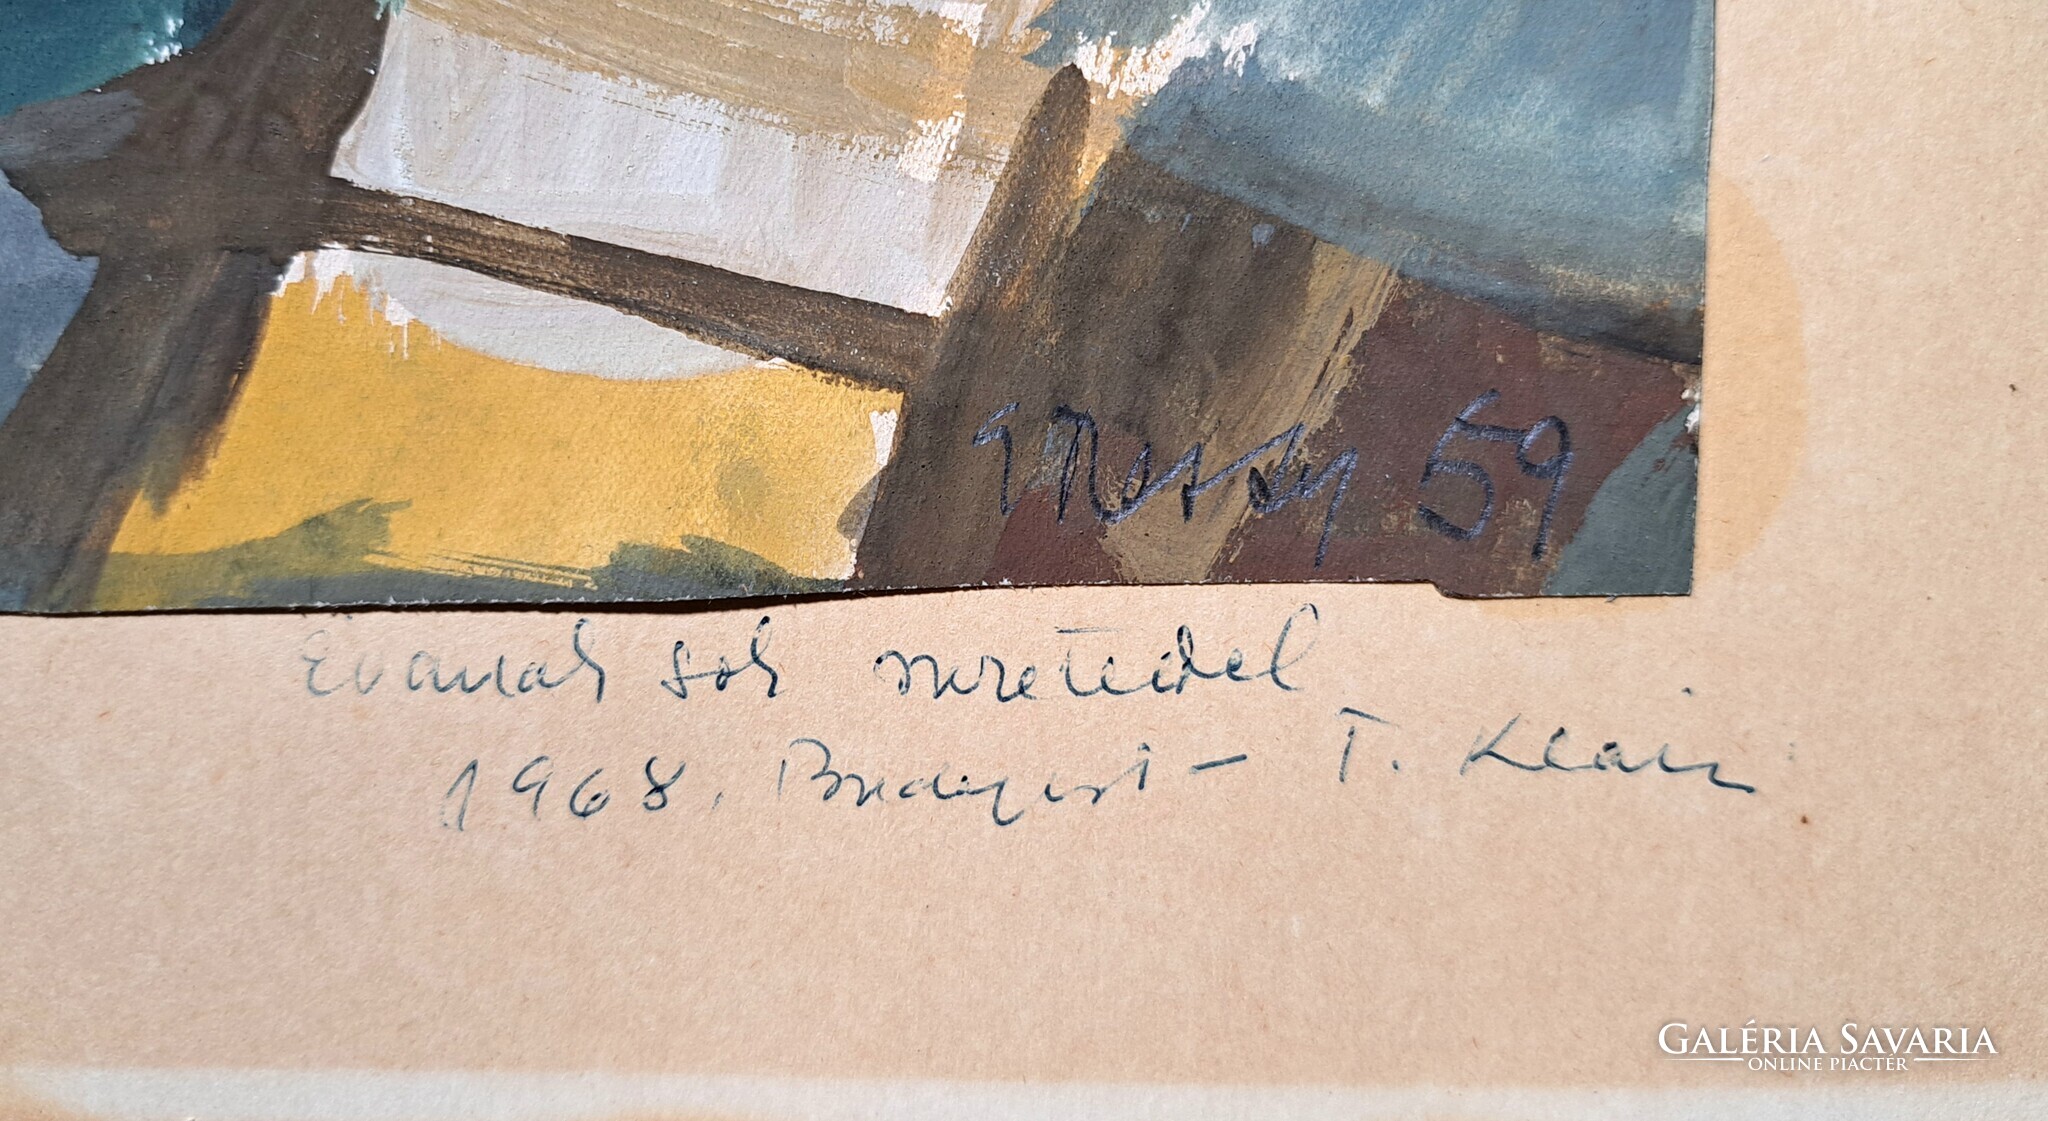 59
Évának sok szeretettel
1968. Budapest - T. Klári
GALÉRIA SAVARIA
ONLINE PIACTÉR